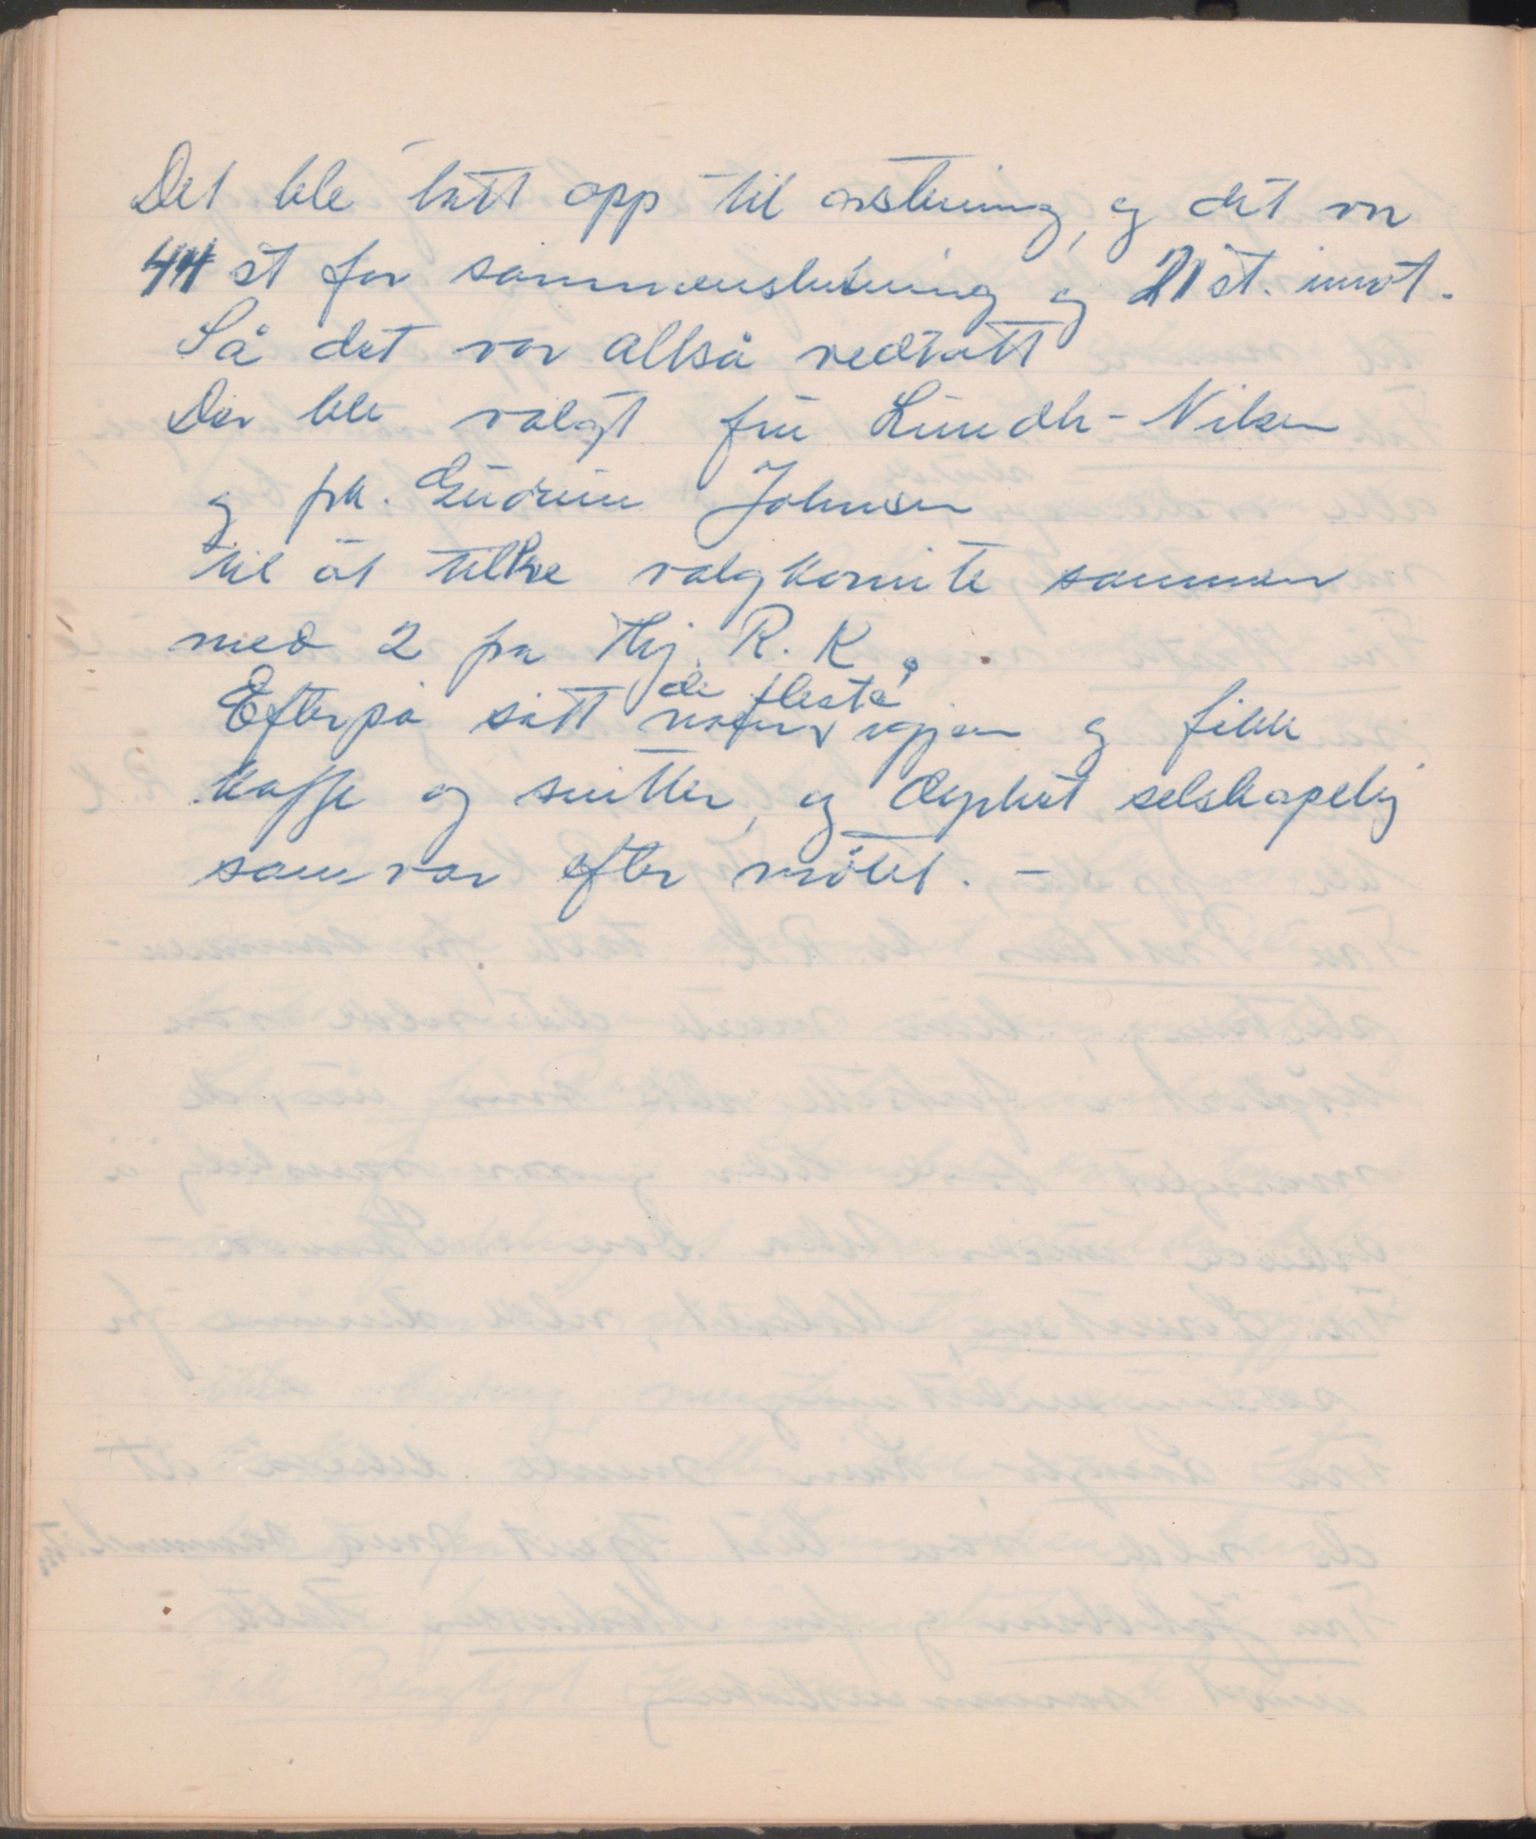 Det ble tatt opp til avstemning, og det var
44 st for sammenslutning og 21 st. imot.
Så det var altså vedtatt
Der ble valgt fru Lundh-Nilsen
og frk. Gudrun Johnsen
til at tiltre valgkomite sammen
med 2 fra Hj. R. K.
Efterpå satt de fleste igjen og fikk
kaffe og snitter, og selskapelig
samvær efter møtet. -